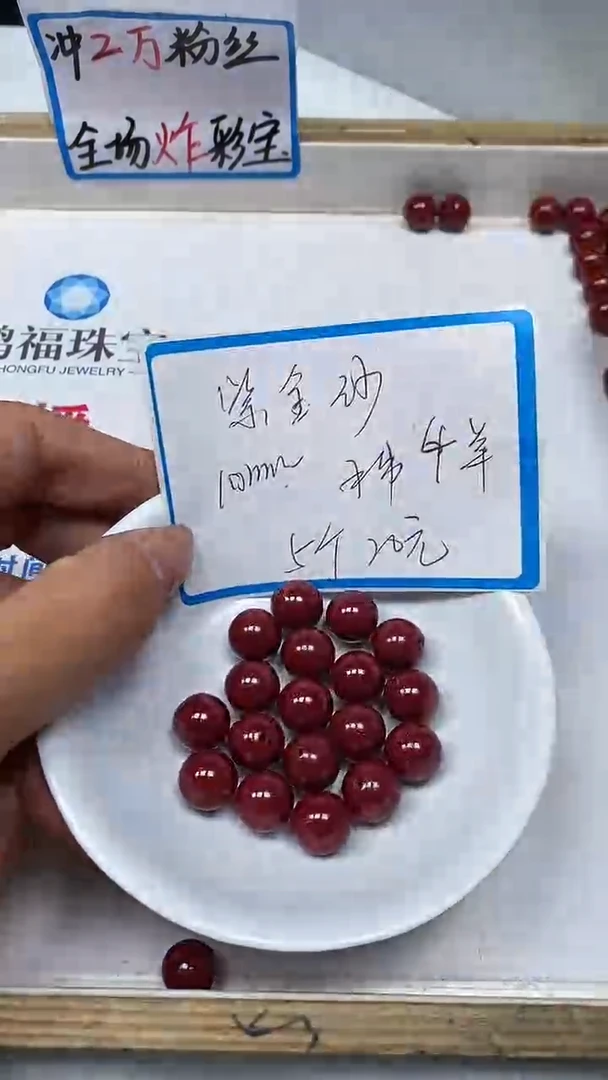 冲2万粉丝
全场炸彩宝
福珠宝
HONGFU JEWELRY
紫金砂
10mm
5个20元
时间